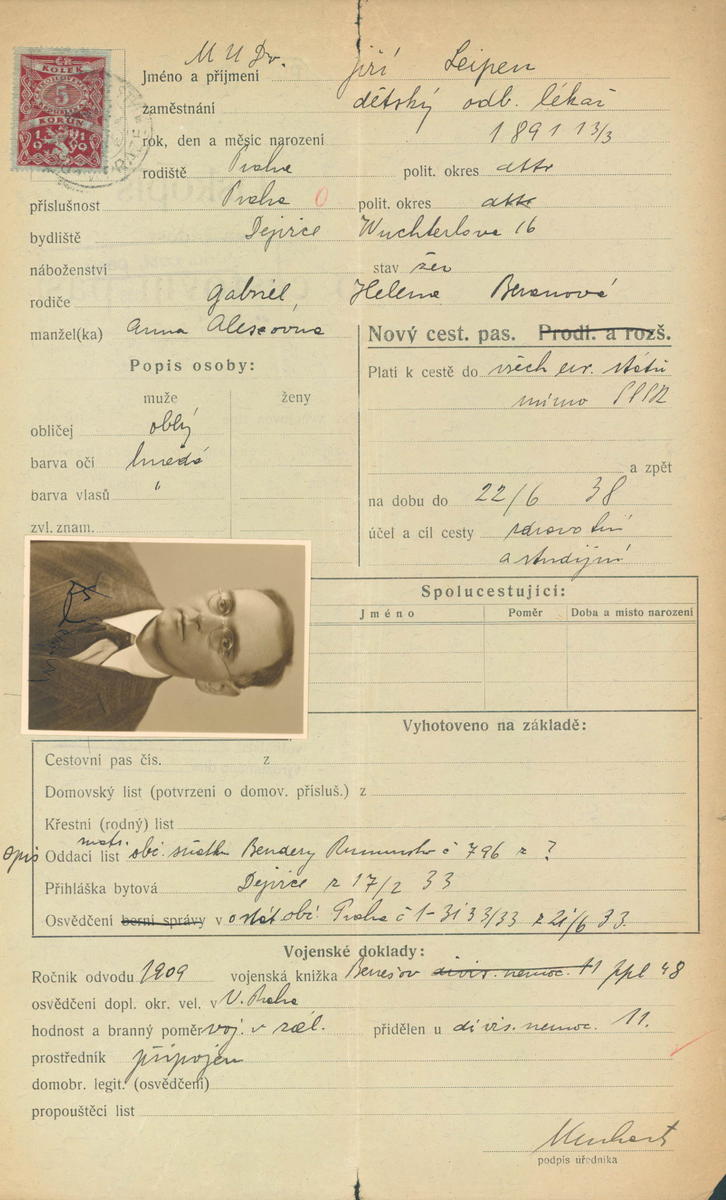 KOLEK
5
KORUN
1919
MUDr. Jiří Leipen
Jméno a příjmení
zaměstnání dětský odb. lékař
rok, den a měsíc narození 1891 13/3
rodiště Praha polit. okres
příslušnost Praha 0 polit. okres
bydliště Dejvice Wuchterlova 16
náboženství stav žen
rodiče Gabriel, Helena Beranová
manžel(ka) Anna
Nový cest. pas. Prodl. a rozš.
Popis osoby:
muže ženy
obličej oblý
barva očí hnědá
barva vlasů "
zvl. znam.
Platí k cestě do všech eur. států
mimo SSSR
a zpět
na dobu do 22/6 38
účel a cíl cesty zdravotní
a studijní
Spolucestující:
Jméno Poměr Doba a místo narození
Vyhotoveno na základě:
Cestovní pas čís. z
Domovský list (potvrzení o domov. přísluš.) z
Křestní (rodný) list
opis Oddací list matr. obč. sňatku Bendery Rumunsko č 796 z ?
Přihláška bytová Dejvice z 17/2 33
Osvědčení berní správy v o stát obč. Praha č 1-3133/33 z 21/6 33.
Vojenské doklady:
Ročník odvodu 1909 vojenská knížka Benešov divis. nemoc. 11 ppl 48
osvědčení dopl. okr. vel. v V. Praha
hodnost a branný poměr voj. v zál. přidělen u divis. nemoc. 11.
prostředník připojen
domobr. legit. (osvědčení)
propouštěcí list
podpis úředníka